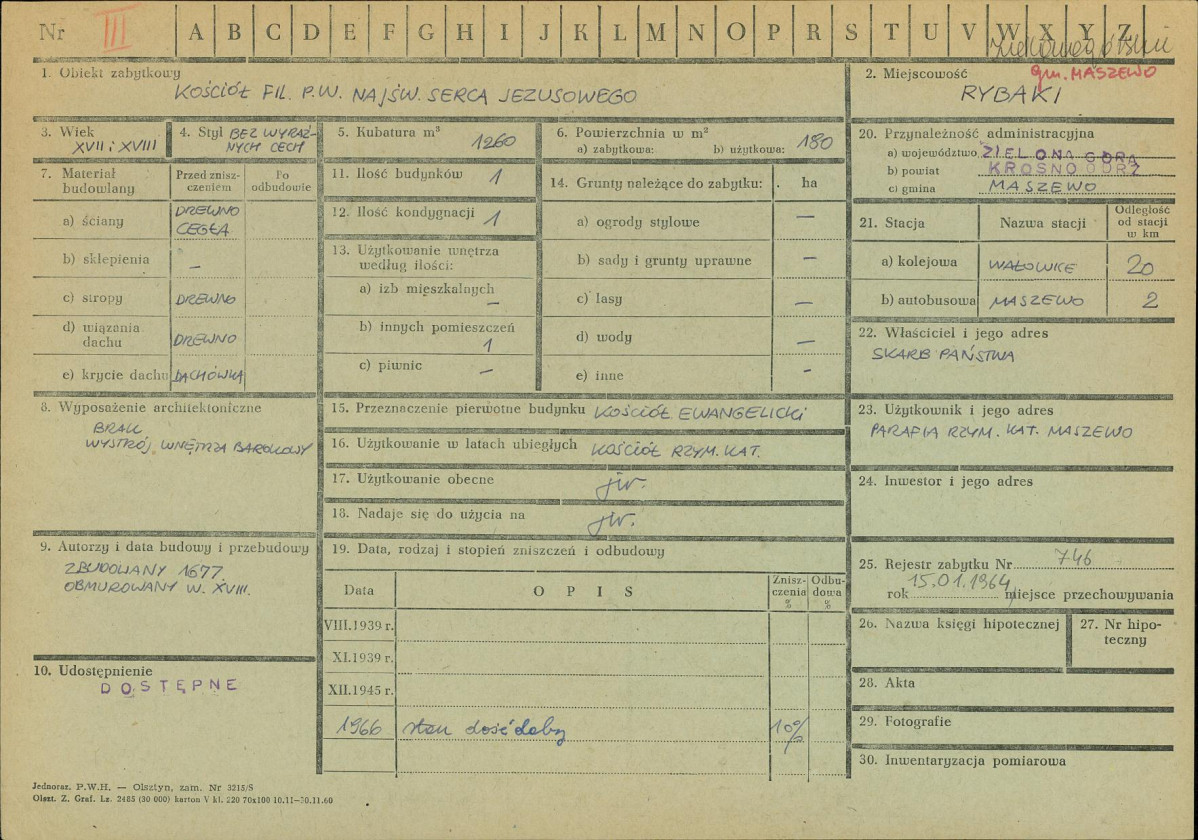 Nr III A B C D E F G H I J K L M N O P R S T U V W X Y Z
gm. MASZEWO
1. Obiekt zabytkowy
KOŚCIÓŁ FIL. P.W. NAJŚW. SERCA JEZUSOWEGO
2. Miejscowość
RYBAKI
3. Wiek
XVII i XVIII
4. Styl BEZ WYRAŹ-
NYCH CECH
5. Kubatura m³
1260
6. Powierzchnia w m²
a) zabytkowa: b) użytkowa: 180
7. Materiał budowlany
Przed znisz-
czeniem
Po
odbudowie
a) ściany DREWNO
CEGŁA
b) sklepienia —
c) stropy DREWNO
d) wiązania
dachu DREWNO
e) krycie dachu DACHÓWKA
8. Wyposażenie architektoniczne
BRAK
WYSTRÓJ WNĘTRZA BAROKOWY
9. Autorzy i data budowy i przebudowy
ZBUDOWANY 1677.
OBMUROWANY W. XVIII.
10. Udostępnienie
DOSTĘPNE
11. Ilość budynków 1
12. Ilość kondygnacji 1
13. Użytkowanie wnętrza
według ilości:
a) izb mieszkalnych
—
b) innych pomieszczeń
1
c) piwnic —
14. Grunty należące do zabytku: . ha
a) ogrody stylowe —
b) sady i grunty uprawne —
c) lasy —
d) wody —
e) inne —
15. Przeznaczenie pierwotne budynku KOŚCIÓŁ EWANGELICKI
16. Użytkowanie w latach ubiegłych KOŚCIÓŁ RZYM. KAT.
17. Użytkowanie obecne jw.
18. Nadaje się do użycia na jw.
19. Data, rodzaj i stopień zniszczeń i odbudowy
Data O P I S Znisz-
czenia
% Odbu-
dowa
%
VIII.1939 r.
XI.1939 r.
XII.1945 r.
1966 stan dość dobry 10%
20. Przynależność administracyjna
a) województwo ZIELONA GÓRA
b) powiat KROSNO ODRZ
c) gmina MASZEWO
21. Stacja Nazwa stacji Odległość
od stacji
w km
a) kolejowa WAŁOWICE 20
b) autobusowa MASZEWO 2
22. Właściciel i jego adres
SKARB PAŃSTWA
23. Użytkownik i jego adres
PARAFIA RZYM. KAT. MASZEWO
24. Inwestor i jego adres
25. Rejestr zabytku Nr 746
rok 15.01.1964 miejsce przechowywania
26. Nazwa księgi hipotecznej
27. Nr hipo-
teczny
28. Akta
29. Fotografie
30. Inwentaryzacja pomiarowa
Jednoraz. P.W.H. — Olsztyn, zam. Nr 3215/S
Olszt. Z. Graf. Lz. 2485 (30 000) karton V kl. 220 70x100 10.11—30.11.60